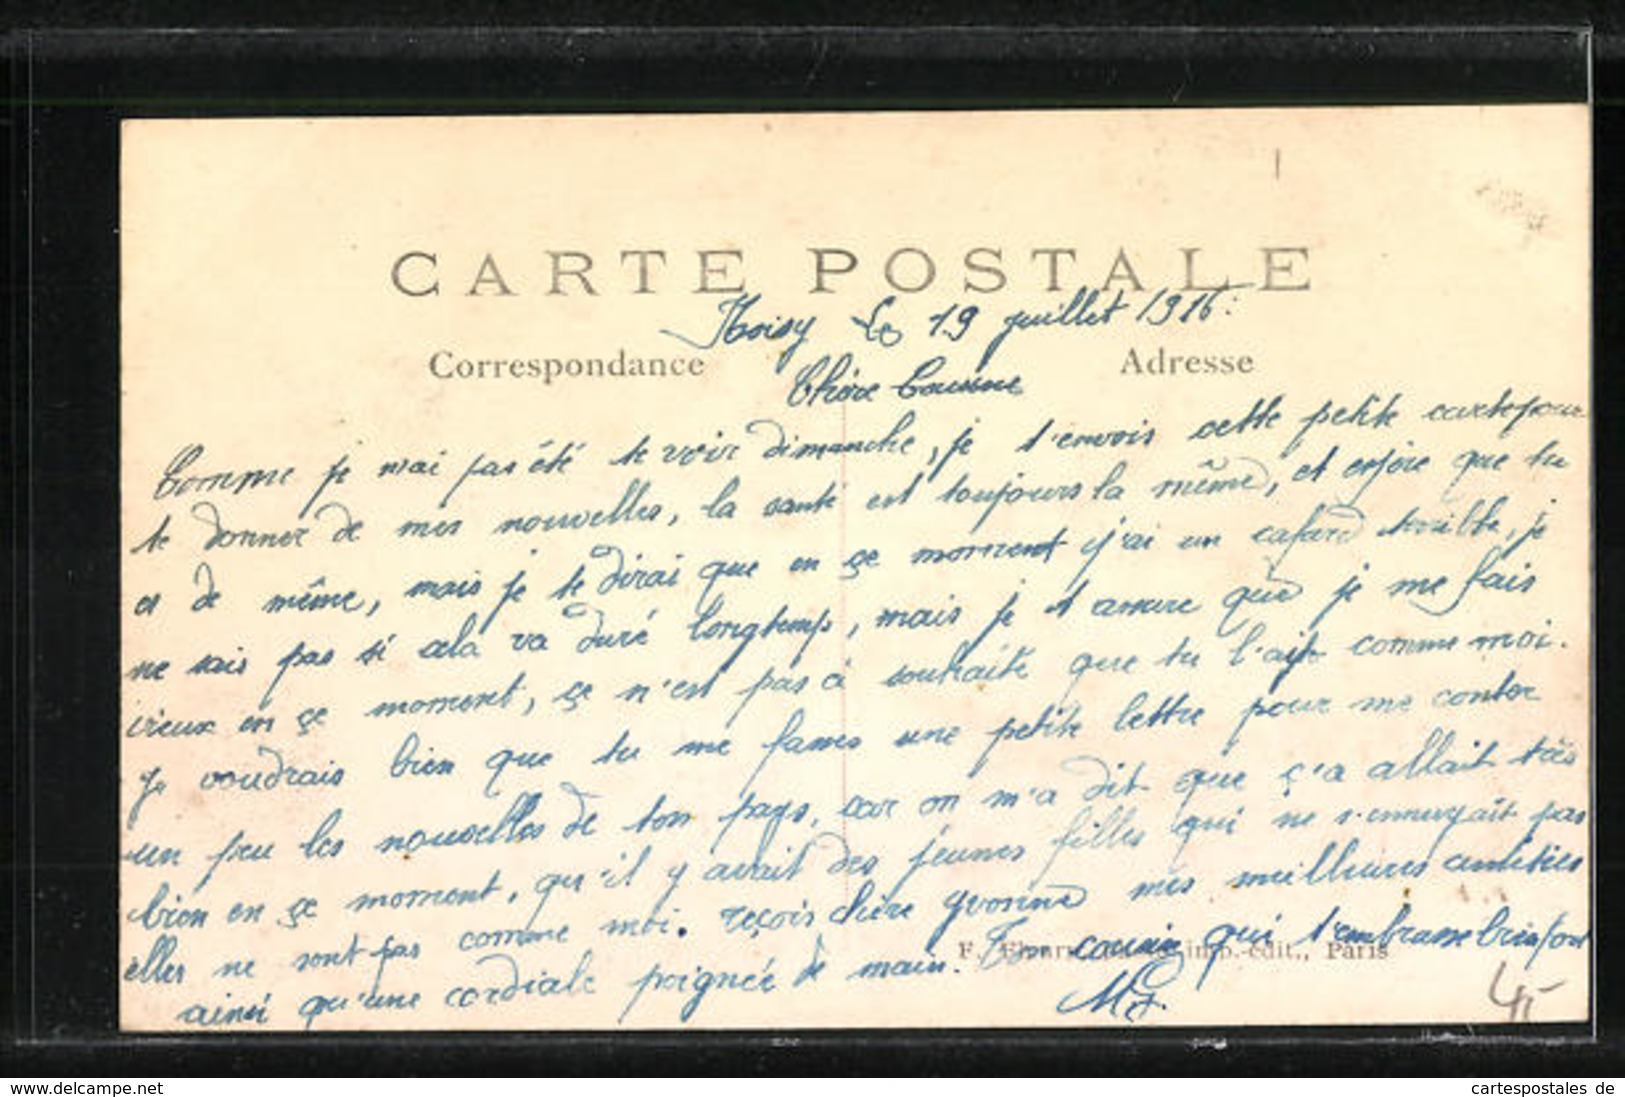 CARTE POSTALE
Noisy Le 19 juillet 1916.
Correspondance
Adresse
Chère Cousine
Comme je n'ai pas été te voir dimanche, je t'envois cette petite carte pour
te donner de mes nouvelles, la santé est toujours la même, et espère que tu
es de même, mais je te dirai que en çe moment j'ai un cafard terrible, je
ne sais pas si cela va duré longtemps, mais je t'assure que je me fais
vieux en çe moment, çe n'est pas à souhaité que tu l'ait comme moi.
Je voudrais bien que tu me fasses une petite lettre pour me conter
un peu les nouvelles de ton pays, car on m'a dit que ç'a allait très
bien en çe moment, qu'il y avait des jeunes filles qui ne s'ennuyait pas
elles ne sont pas comme moi. reçois chère Yvonne mes meilleures amitiés
ainsi qu'une cordiale poignée de main. Ton cousin qui t'embrasse bien fort
imp.-édit., Paris
45
www.delcampe.net
cartespostales de